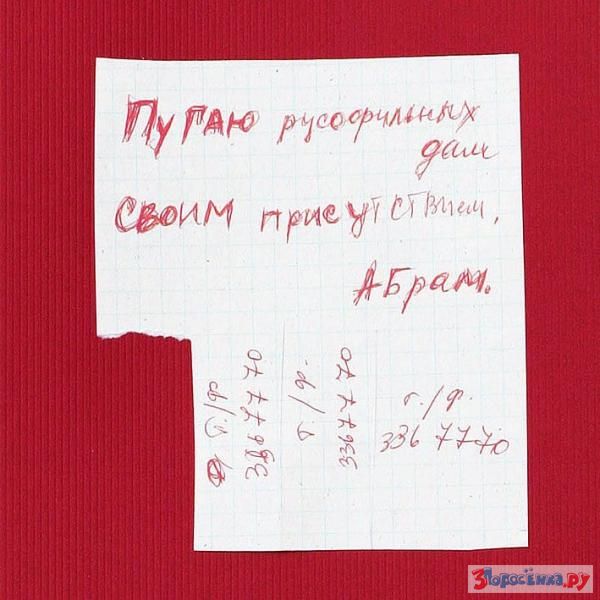 ПуГАЮ русофильных
дам
СВОИМ присутствием,
АБрам.
т./ф.
336 77 70
т./ф.
336 77 70
т./ф.
336 7770
3Поросёнка.ру